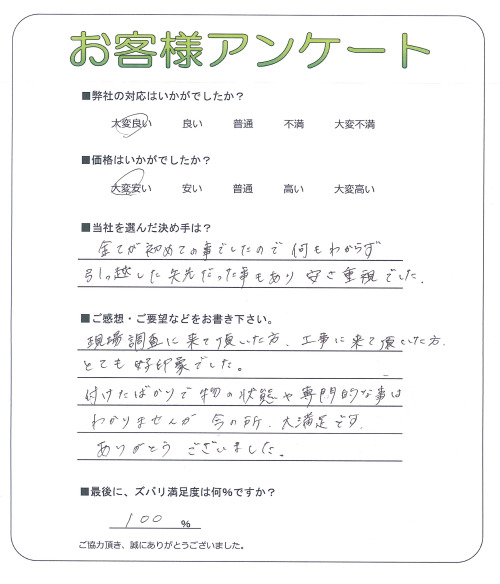 お客様アンケート
■弊社の対応はいかがでしたか？
大変良い 良い 普通 不満 大変不満
■価格はいかがでしたか？
大変安い 安い 普通 高い 大変高い
■当社を選んだ決め手は？
全てが初めての事でしたので何もわからず
引っ越した矢先だった事もあり安さ重視でした.
■ご感想・ご要望などをお書き下さい。
現場調査に来て頂いた方、工事に来て頂いた方、
とても好印象でした。
付けたばかりで物の状態や専門的な事は
わかりませんが今の所、大満足です.
ありがとうございました。
■最後に、ズバリ満足度は何％ですか？
100 %
ご協力頂き、誠にありがとうございました。